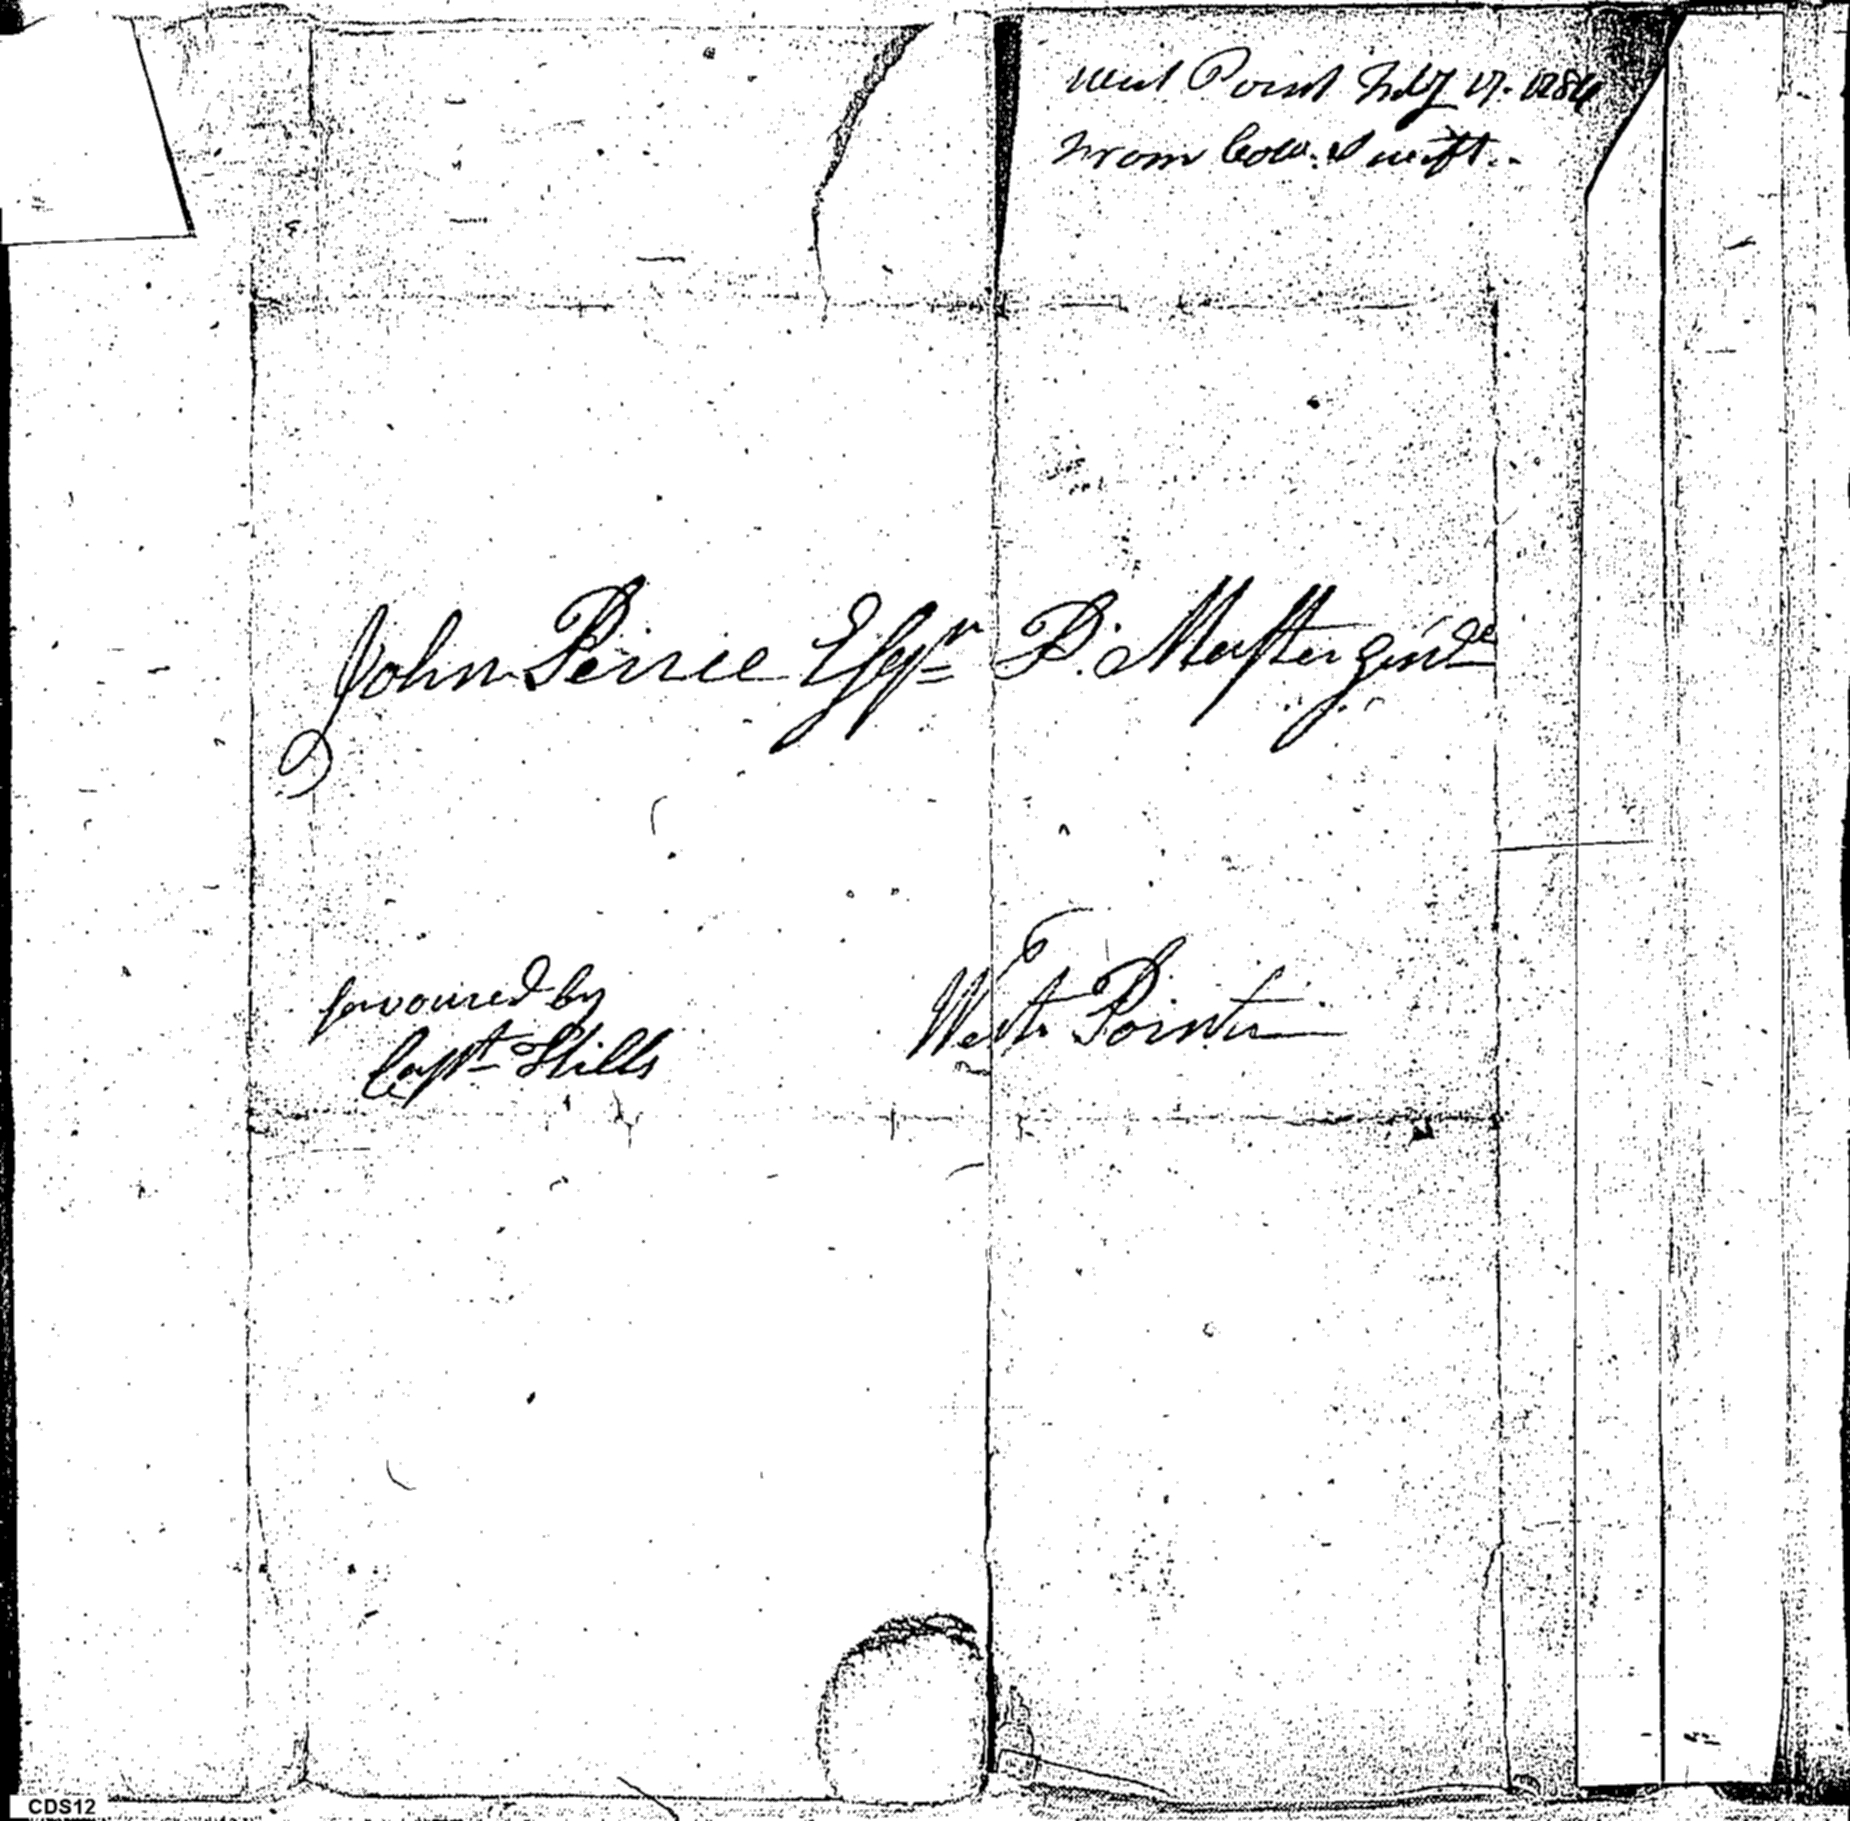 West Point Feby 17. 1784
From Colo. Swift.
John Peirce Esqr P. Master Genl
favoured by
Capt Hills
West Point
CDS12